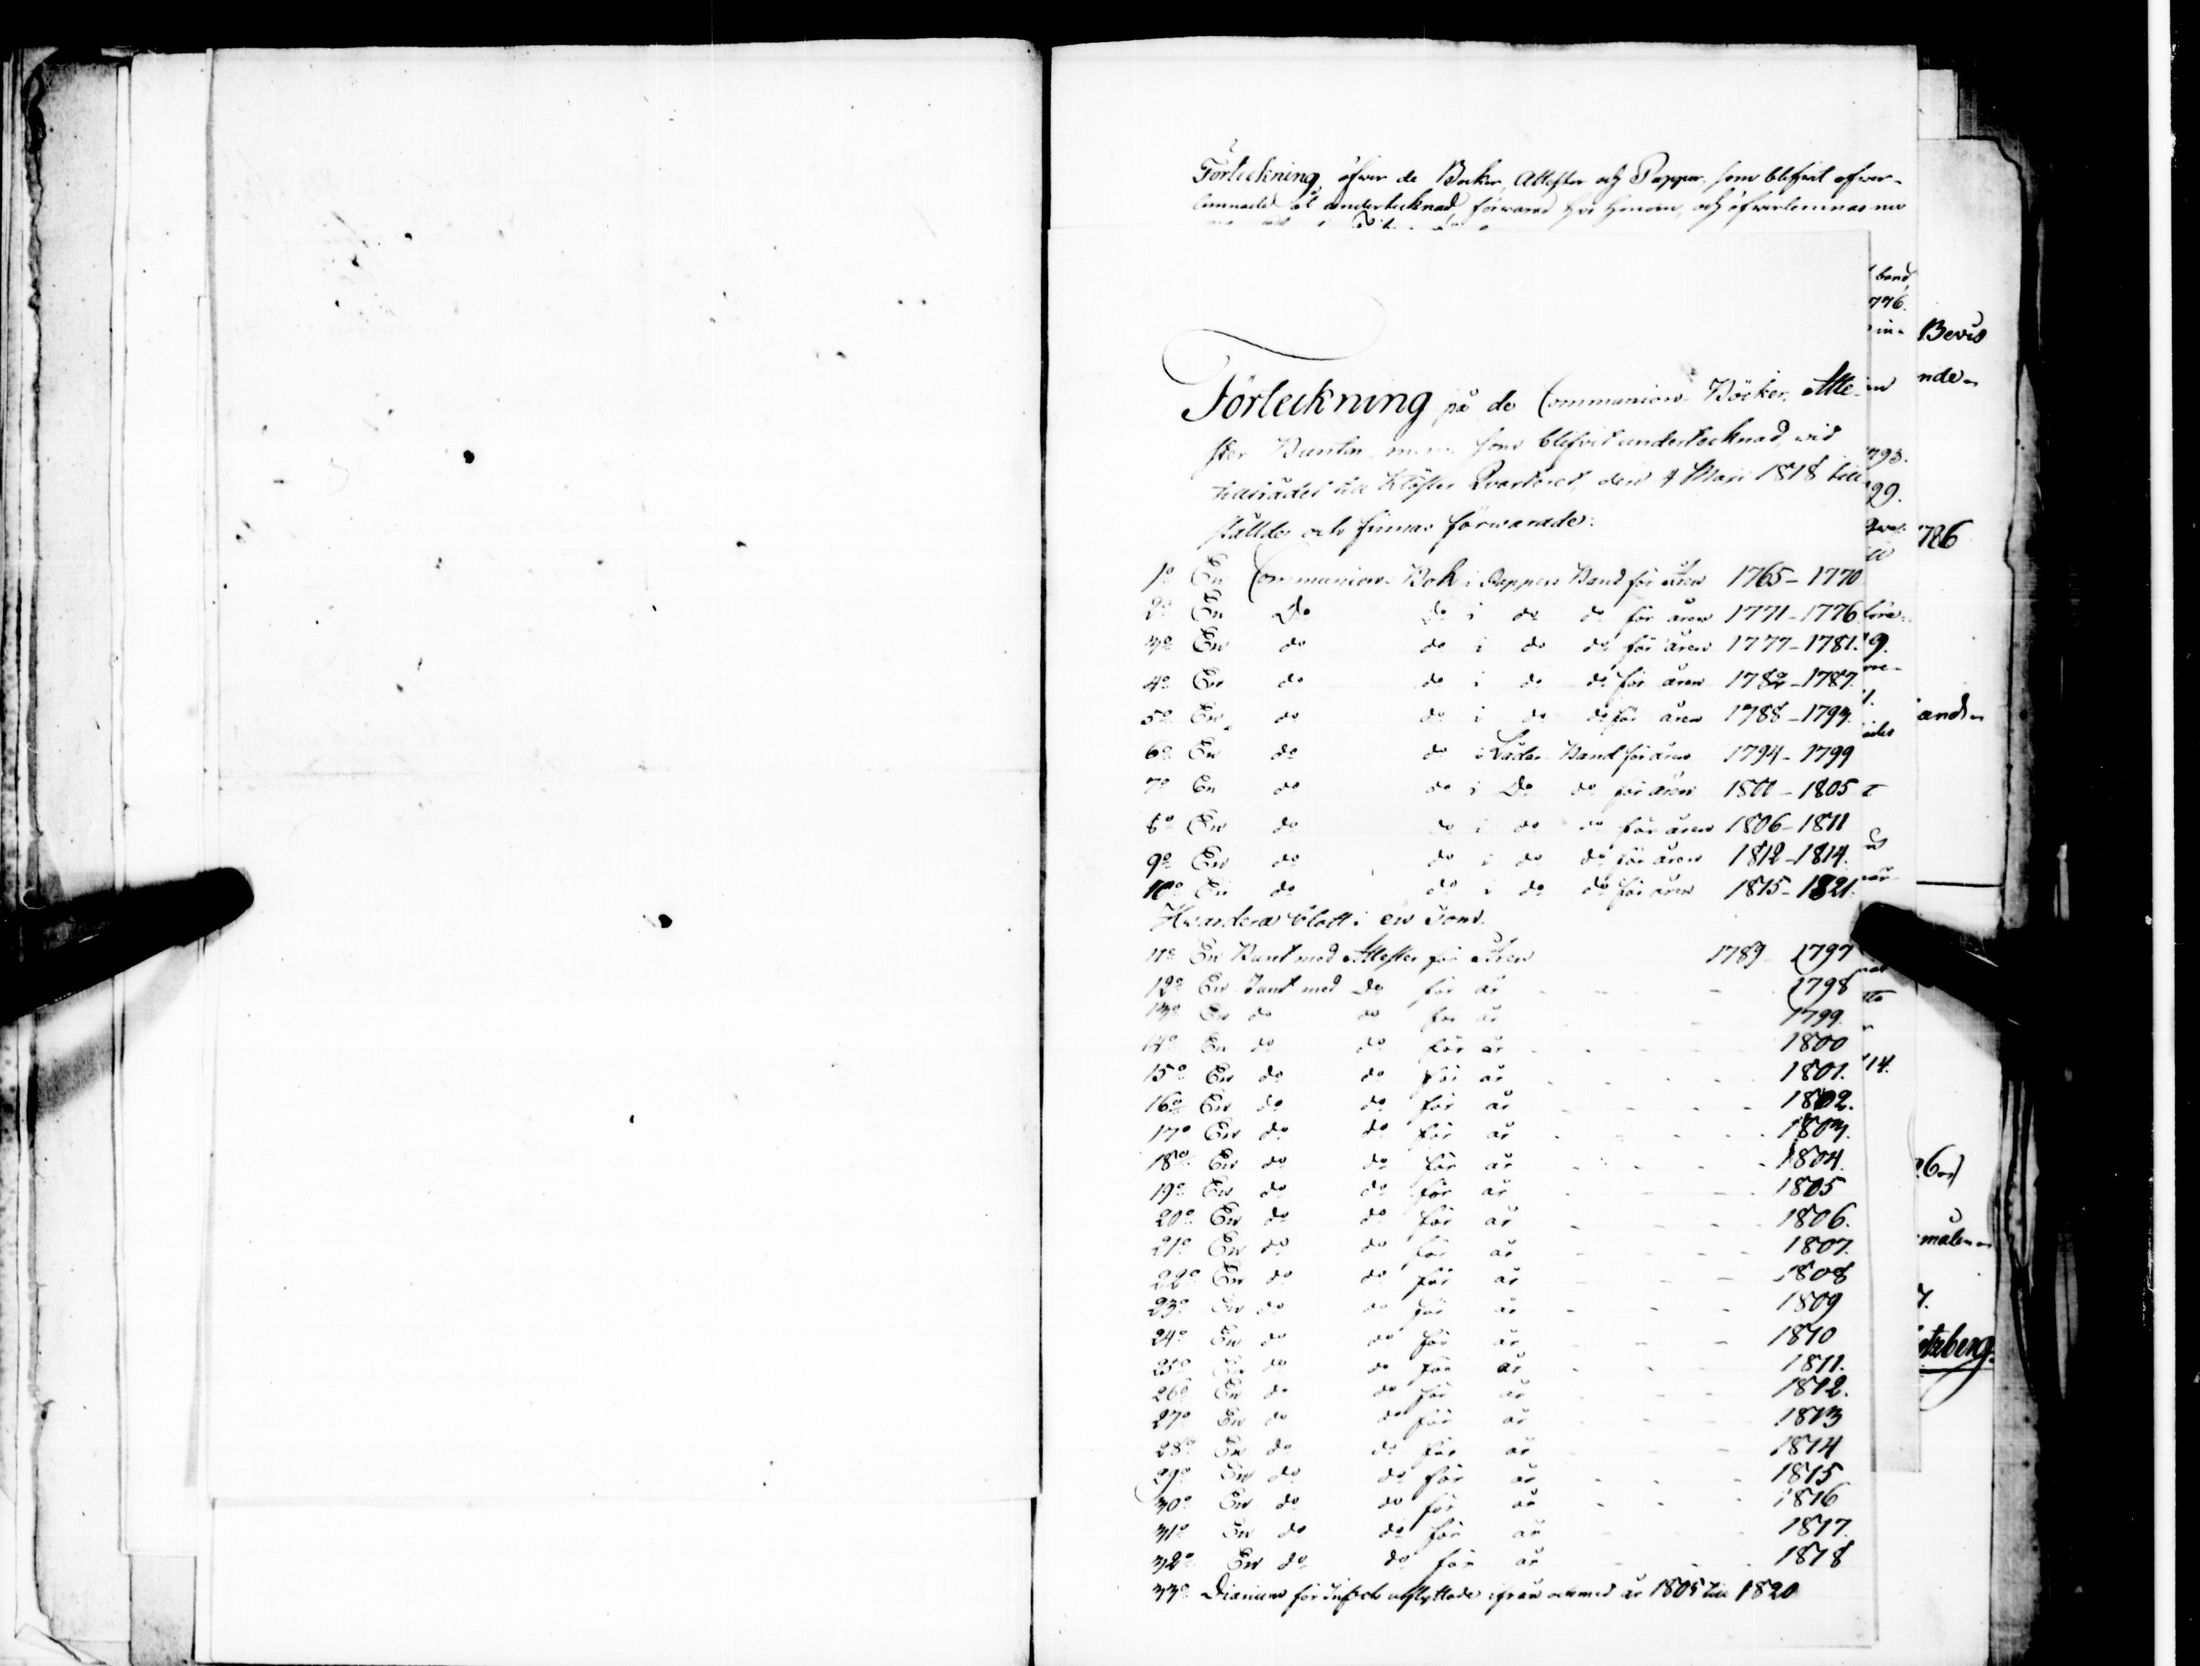 Förteckning öfver de Böcker, Attester och Papper, som blifvit öfver-
lemnade åt undertecknad, och öfverlemnas nu
band
776.
Bevis
nde-
Förteckning på de Communion-Böcker, Atte-
ster Buntar m.m. som blifvit undertecknad, vid
tillträdet till Klöster Quarteret, den 4 Maji 1818 till
ställde och finnas förvarade:
793.
99.
786
1o En Communion-Bok i Pappers Band för Åren 1765-1770
2o En Do do i do do för åren 1771-1776
3o En do do i do do för åren 1777-1781.
4o En do do i do do för åren 1782-1787.
5o En do do i do do för åren 1788-1793.
6o En do do i Läder Band för åren 1794-1799
7o En do do i Do do för åren 1800-1805
8o En do do i do do för åren 1806-1811
9o En do do i do do för åren 1812-1814.
10o En do do i do do för åren 1815-1821.
Hvardera blott i en Tom.
11o En Bunt med Attester för Åren 1789-1797
12o En Bunt med Do för år 1798
13o En do do för år 1799.
14o En do do för år 1800
15o En do do för år 1801.
14.
16o En do do för år 1802.
17o En do do för år 1803.
18o En do do för år 1804.
19o En do do för år 1805
20o En do do för år 1806.
21o En do do för år 1807.
målen
22o En do do för år 1808
23o En do do för år 1809
24o En do do för år 1810
tzberg.
25o En do do för år 1811.
26o En do do för år 1812.
27o En do do för år 1813
28o En do do för år 1814
29o En do do för år 1815
30o En do do för år 1816
31o En do do för år 1817.
32o En do do för år 1818
33o Diarium för In och utflyttade ifrån och med år 1805 till 1820